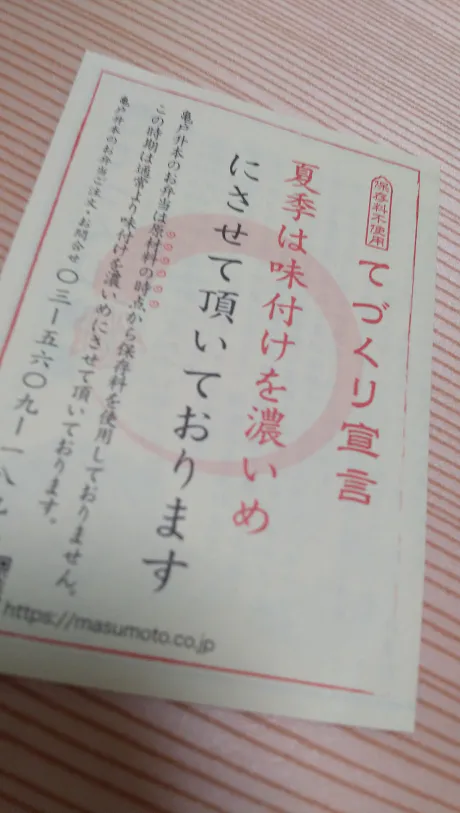 保存料不使用
てづくり宣言
夏季は味付けを濃いめ
にさせて頂いております
亀戸升本のお弁当は原材料の時点から保存料を使用しておりません。
この時期は通常より味付けを濃いめにさせて頂いております。
亀戸升本のお弁当ご注文・お問合せ 〇三ー五六〇九ー一八九
https://masumoto.co.jp